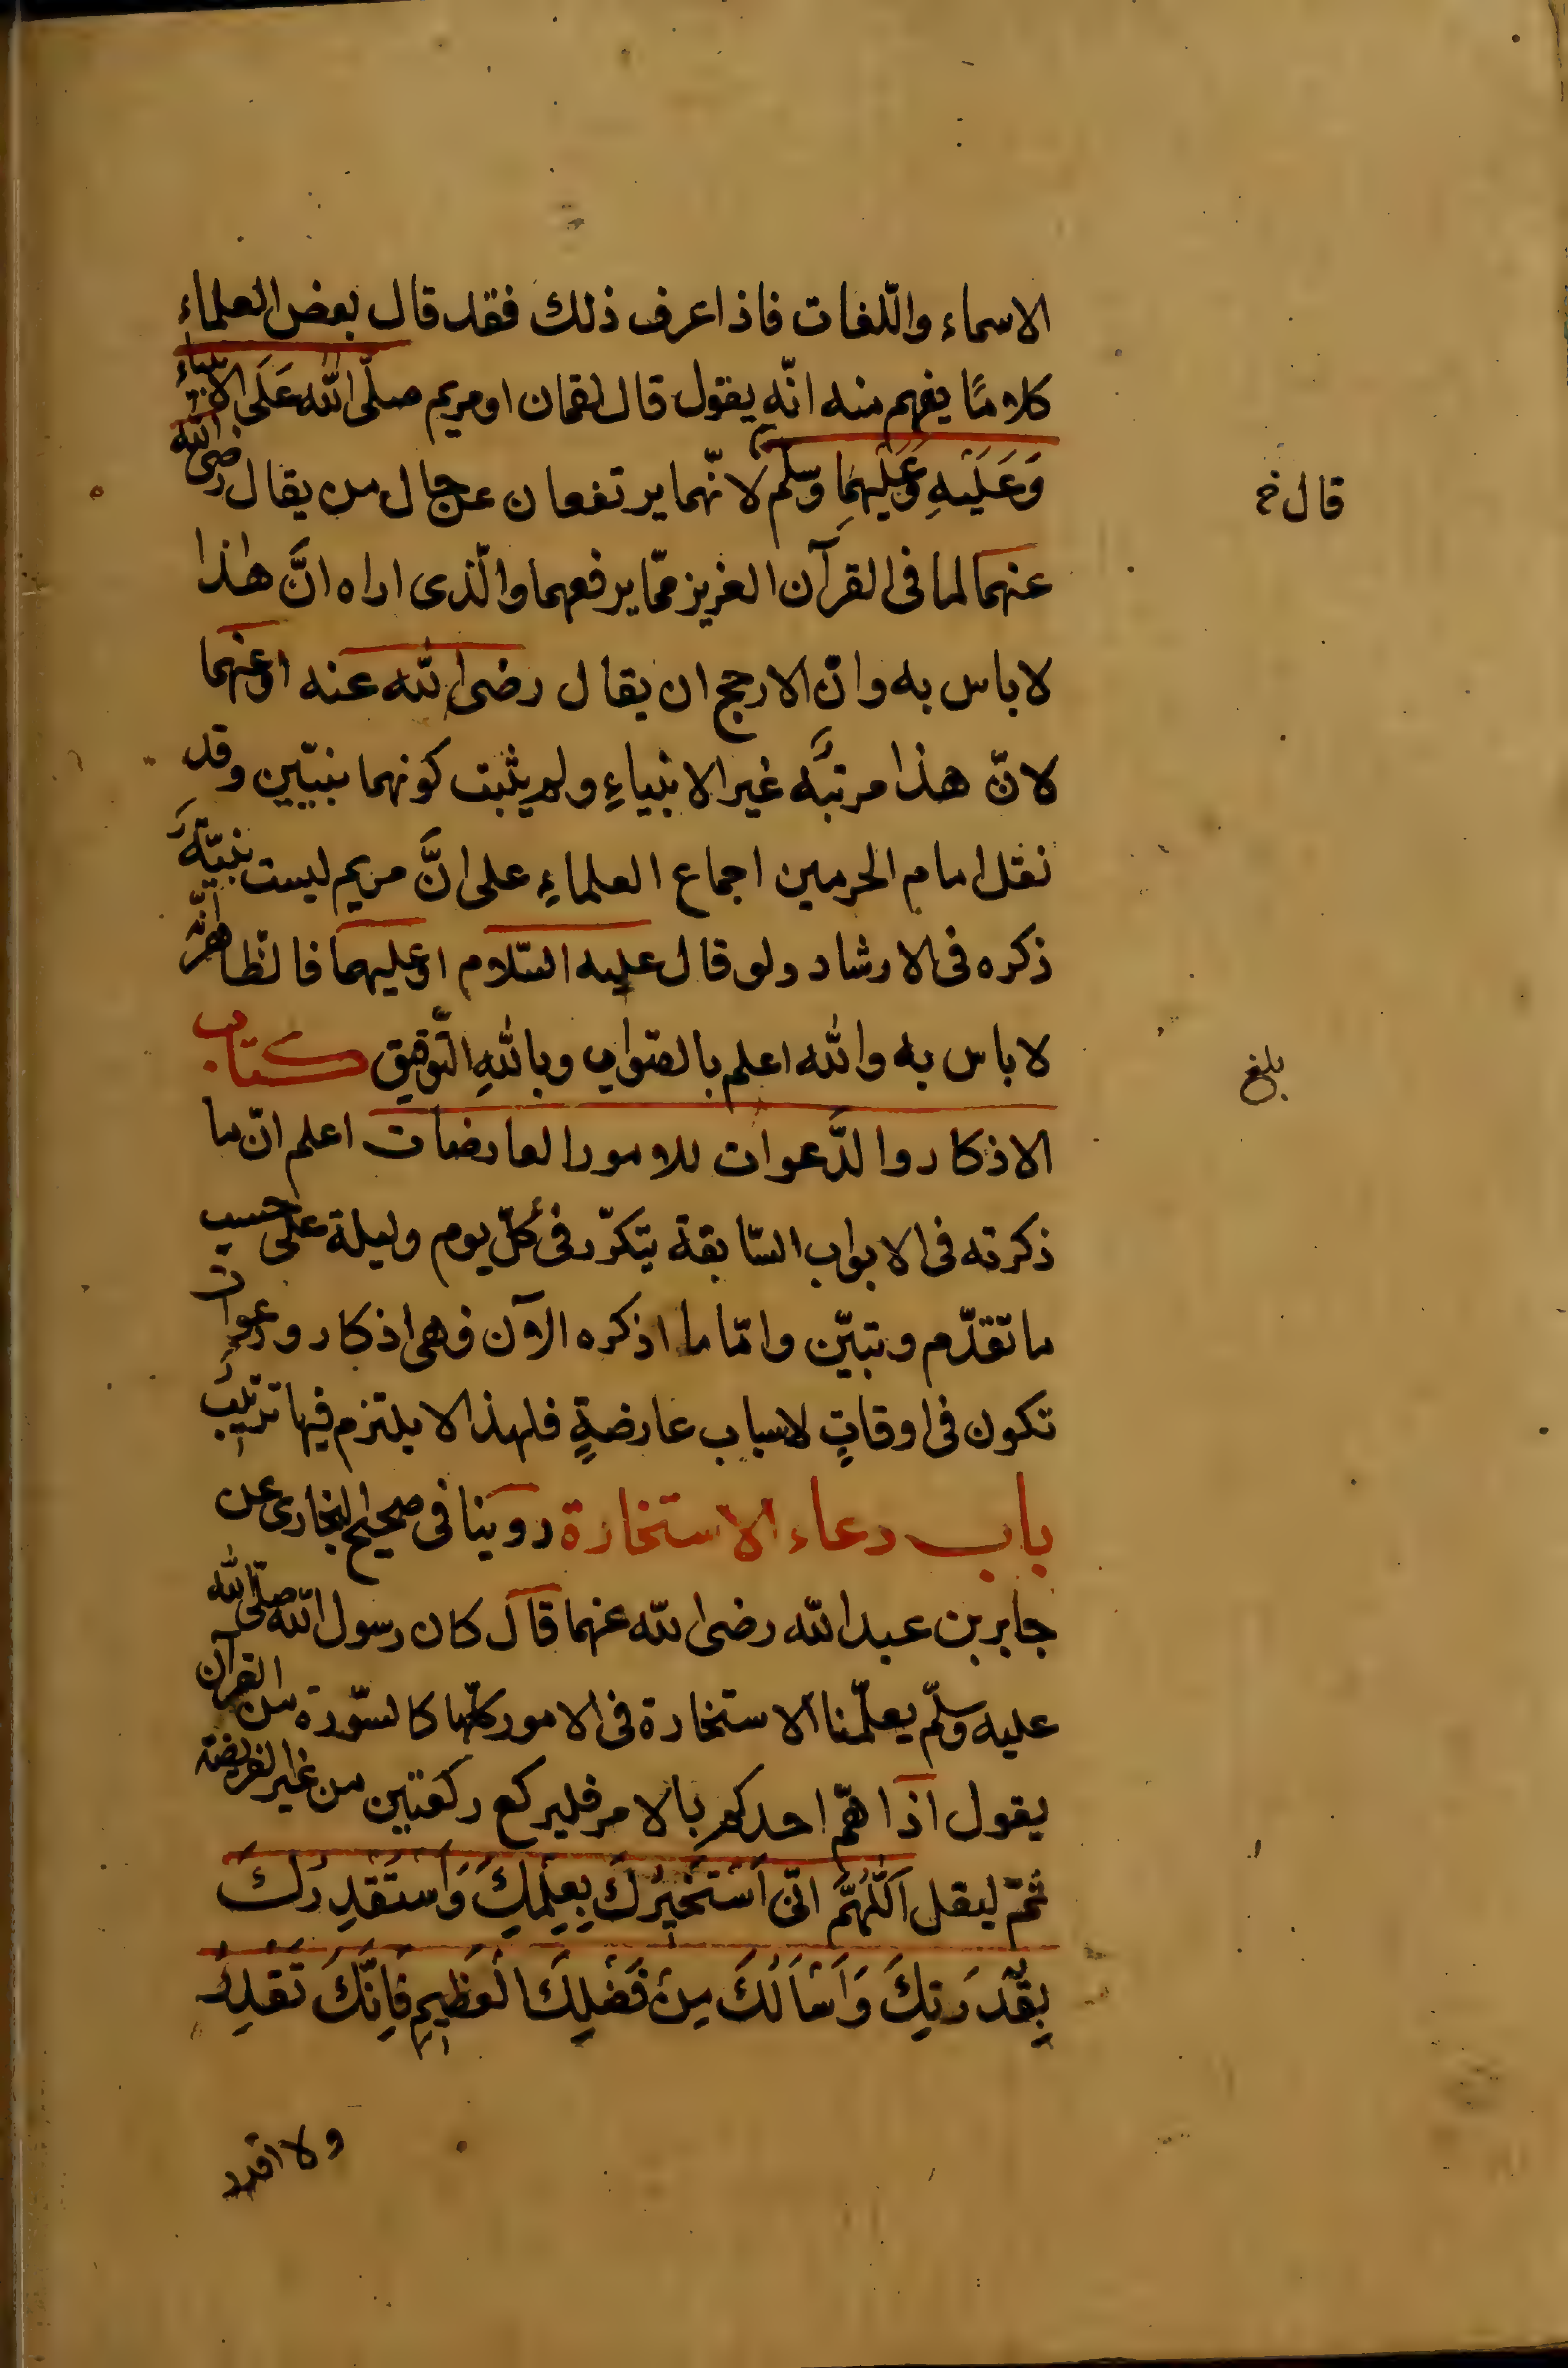 الاسماء واللّغات فاذا عرف ذلك فقد قال بعض العلماء
كلامًا يفهم منه انّه يقول قال لقمان او مريم صلّى الله عَلَى الانبياء
وَعَلَيهِ وَعَلَيهِمَا وسلّم لانّهما يرتفعان عن حال من يقال رضى الله
قال خ
عنهما لما فى القرآن العزيز ممّا يرفعهما والّذى اراه انَّ هٰذا
لا باس به وانّ الارجح ان يقال رضى الله عنه او عنهما
لانّ هذا مرتبَة غير الانبياءِ ولم يثبت كونهما نبيّين وقد
نقل امام الحرمين اجماع العلماءِ على انَّ مريم ليست نبيّةً
ذكره فى الارشاد ولو قال عليه السّلام او عليهما فالظّاهر انّه
لا باس به والله اعلم بالصّواب وباللهِ التّوفيق كتاب
بلغ
الاذكار والدَّعوات للامور العارضات اعلم انّ ما
ذكرته فى الابواب السّابقة يتكرّر فى كلّ يوم وليلة على حسب
ما تقدّم وتبيّن وامّا ما اذكره الآن فهى اذكار ودعوات
تكون فى اوقاتٍ لاسباب عارضةٍ فلهذا لا يلتزم فيها ترتيبُ
باب دعاء الاستخارة روينا فى صحيح البخارى عن
جابر بن عبد الله رضى الله عنهما قال كان رسول الله صلّى الله
عليه وسلّم يعلّمنا الاستخارة فى الامور كلّها كالسّورة من القرآن
يقول اذا همّ احدكم بالامر فليركع ركعتين من غير الفريضة
ثمّ ليقل اَللّٰهُمَّ انّى اَسْتَخيْرُكَ بِعِلْمِكَ وَاَسْتَقْدِرُكَ
بِقُدْرَتِكَ وَاَسْاَلُكَ مِنْ فَضْلِكَ الْعَظيمِ فَاِنَّكَ تَقْدِرُ
ولا اقدر